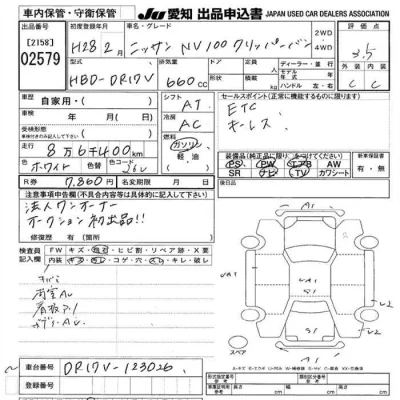 車内保管・守衛保管
JU 愛知 出品申込書 JAPAN USED CAR DEALERS ASSOCIATION
出品番号 初度登録年月 車名・グレード 評価点
[2158] H28 2月 ニッサン NV100クリッパーバン 2WD 4WD 3.5
02579
型式 排気量 ドア 形状 ディーラー・並行 外装 内装
HBD-DR17V 660cc 積載量 kg モデル年式 年 ハンドル 左・右 C C
車歴 自家用・ シフト AT セールスポイント(正常に機能するものに限ります)
車検 年 月(日) 冷房 AC ETC
受検形態 燃料 ガソリン キーレス
走行 8万6千400km 軽油
色 ホワイト 色替 色コード 26U 装備品(純正品に限り○をつけてください) 新車保証書
R券 7,860円 名変期限 月 日 PS PW エアB AW 有・無
SR ナビ TV カワシート
注意事項申告欄(不具合内容等は具体的に記入して下さい) 後日品
法人ワンオーナー
オークション初出品!!
修復歴 有(箇所 )無
検査員記入欄 FW キズ・ ヒビ割・リペア跡・X要
内装 キズ・コゲ・穴・スレ・キレ・破レ
看板アト
スペア
車台番号 DR17V-123026
登録番号
型式指定番号 長さ cm 幅 cm 高さ cm